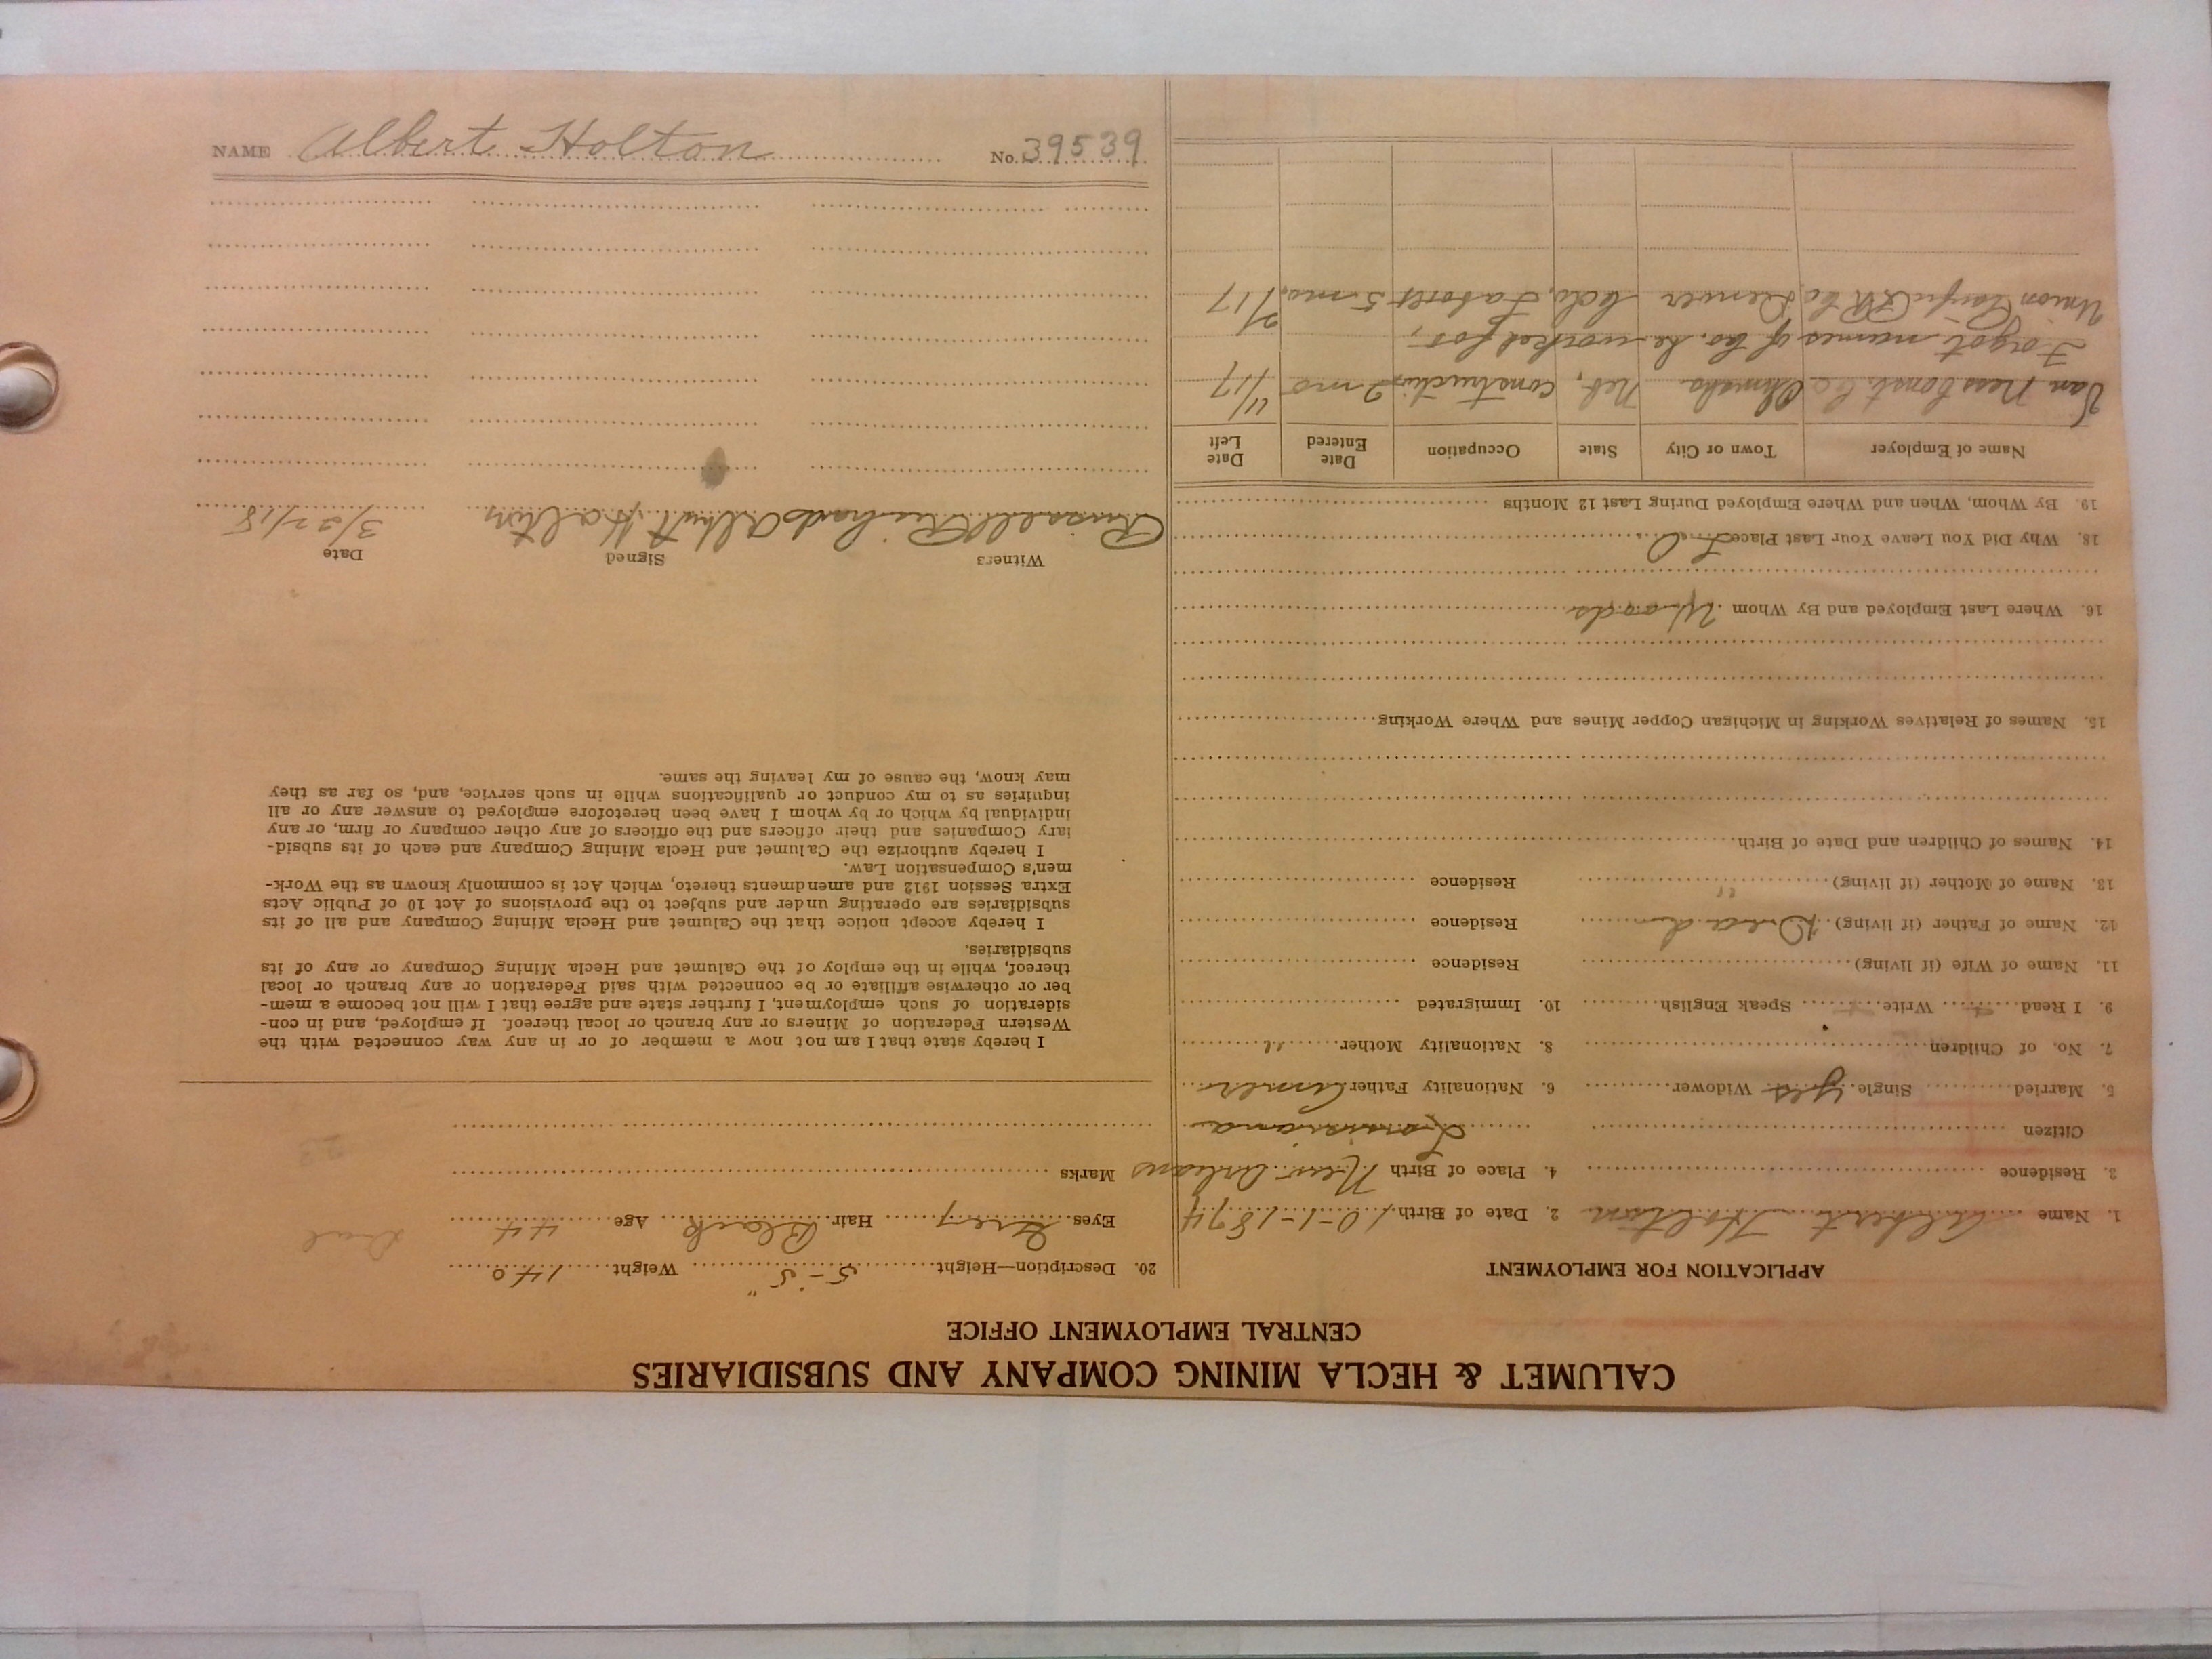 CALUMET & HECLA MINING COMPANY AND SUBSIDIARIES
CENTRAL EMPLOYMENT OFFICE
APPLICATION FOR EMPLOYMENT
1. Name Albert Holton 2. Date of Birth 10-1-1874
3. Residence 4. Place of Birth New Orleans
Citizen Louisiana
5. Married Single yes Widower 6. Nationality Father Amer
7. No. of Children 8. Nationality Mother "
9. I Read Write Speak English 10. Immigrated
11. Name of Wife (if living) Residence
12. Name of Father (if living) Dead Residence
13. Name of Mother (if living) " Residence
14. Names of Children and Date of Birth
15. Names of Relatives Working in Michigan Copper Mines and Where Working
16. Where Last Employed and By Whom Woods
18. Why Did You Leave Your Last Place
19. By Whom, When and Where Employed During Last 12 Months
Name of Employer Town or City State Occupation Date Entered Date Left
Van Ness Const. Co Omaha Neb. construction 2 mo 11/17
Forgot names of Co. he worked for,
Union Pacific RR Co. Denver Colo. Laborer 5 mo. 2/17
20. Description—Height 5'-5" Weight 140
Eyes Grey Hair Black Age 44
Marks
23
I hereby state that I am not now a member of or in any way connected with the
Western Federation of Miners or any branch or local thereof. If employed, and in con-
sideration of such employment, I further state and agree that I will not become a mem-
ber or otherwise affiliate or be connected with said Federation or any branch or local
thereof, while in the employ of the Calumet and Hecla Mining Company or any of its
subsidiaries.
I hereby accept notice that the Calumet and Hecla Mining Company and all of its
subsidiaries are operating under and subject to the provisions of Act 10 of Public Acts
Extra Session 1912 and amendments thereto, which Act is commonly known as the Work-
men's Compensation Law.
I hereby authorize the Calumet and Hecla Mining Company and each of its subsid-
iary Companies and their officers and the officers of any other company or firm, or any
individual by which or by whom I have been heretofore employed to answer any or all
inquiries as to my conduct or qualifications while in such service, and, so far as they
may know, the cause of my leaving the same.
Witness Signed Date
Russell Richards Albert Holton 3/22/18
NAME Albert Holton No. 39539